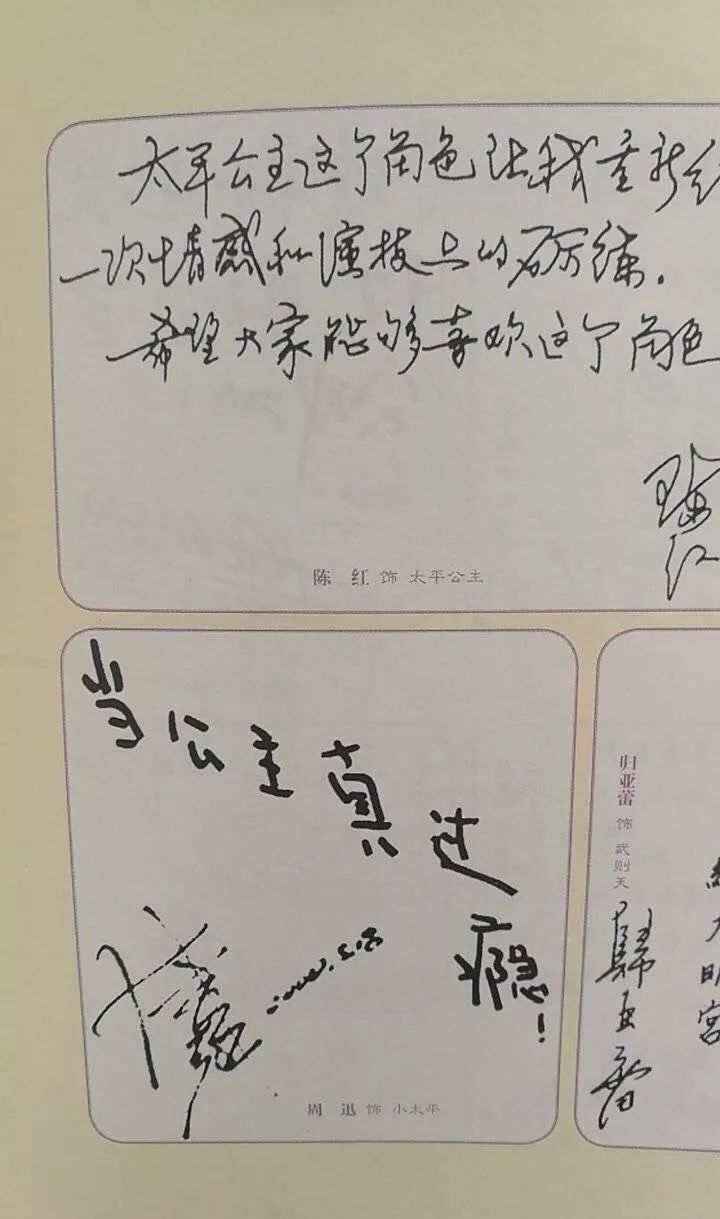 太平公主这个角色让我重新经
一次情感和演技上的砺练.
希望大家能够喜欢这个角色
陈
红
陈 红 饰 太平公主
当公主真过瘾!
周 迅 饰 小太平
归亚蕾 饰 武则天
歸亞蕾
大明宮